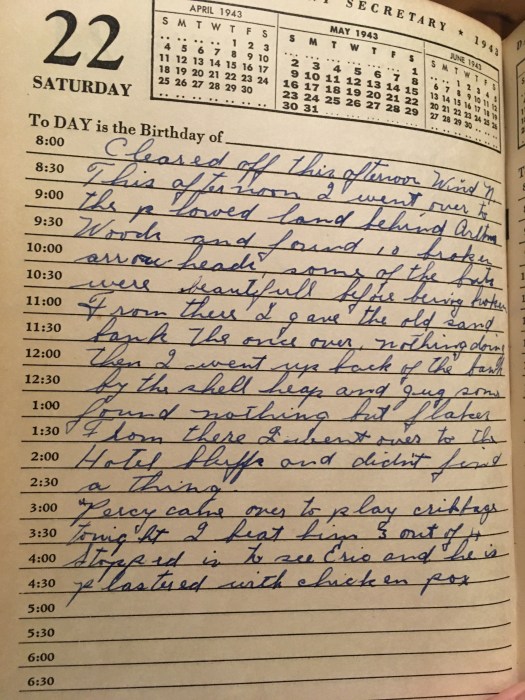 SECRETARY ★ 1943
22
SATURDAY
APRIL 1943
S M T W T F S
.. .. .. .. 1 2 3
4 5 6 7 8 9 10
11 12 13 14 15 16 17
18 19 20 21 22 23 24
25 26 27 28 29 30 ..
MAY 1943
S M T W T F S
.. .. .. .. .. .. 1
2 3 4 5 6 7 8
9 10 11 12 13 14 15
16 17 18 19 20 21 22
23 24 25 26 27 28 29
30 31 .. .. .. .. ..
JUNE 1943
S M T W T F S
.. .. 1 2 3 4 5
6 7 8 9 10 11 12
13 14 15 16 17 18 19
20 21 22 23 24 25 26
27 28 29 30 .. .. ..
To DAY is the Birthday of
8:00 Cleared off this afternoon Wind N.
8:30 This afternoon I went over to
9:00 the plowed land behind
9:30 Woods and found 10 broken
10:00 arrow heads, some of the
10:30 were beautifull before being broken
11:00 From there I gave the old sand
11:30 bank the once over, nothing doing
12:00 then I went up back of the bank
12:30 by the shell heap and dug some
1:00 found nothing but flakes
1:30 From there I went over to the
2:00 Hotel bluffs and didn't find
2:30 a thing.
3:00 Percy came over to play cribbage
3:30 tonight I beat him 3 out of 4
4:00 Stopped in to see Eric and he is
4:30 plastered with chicken pox
5:00
5:30
6:00
6:30